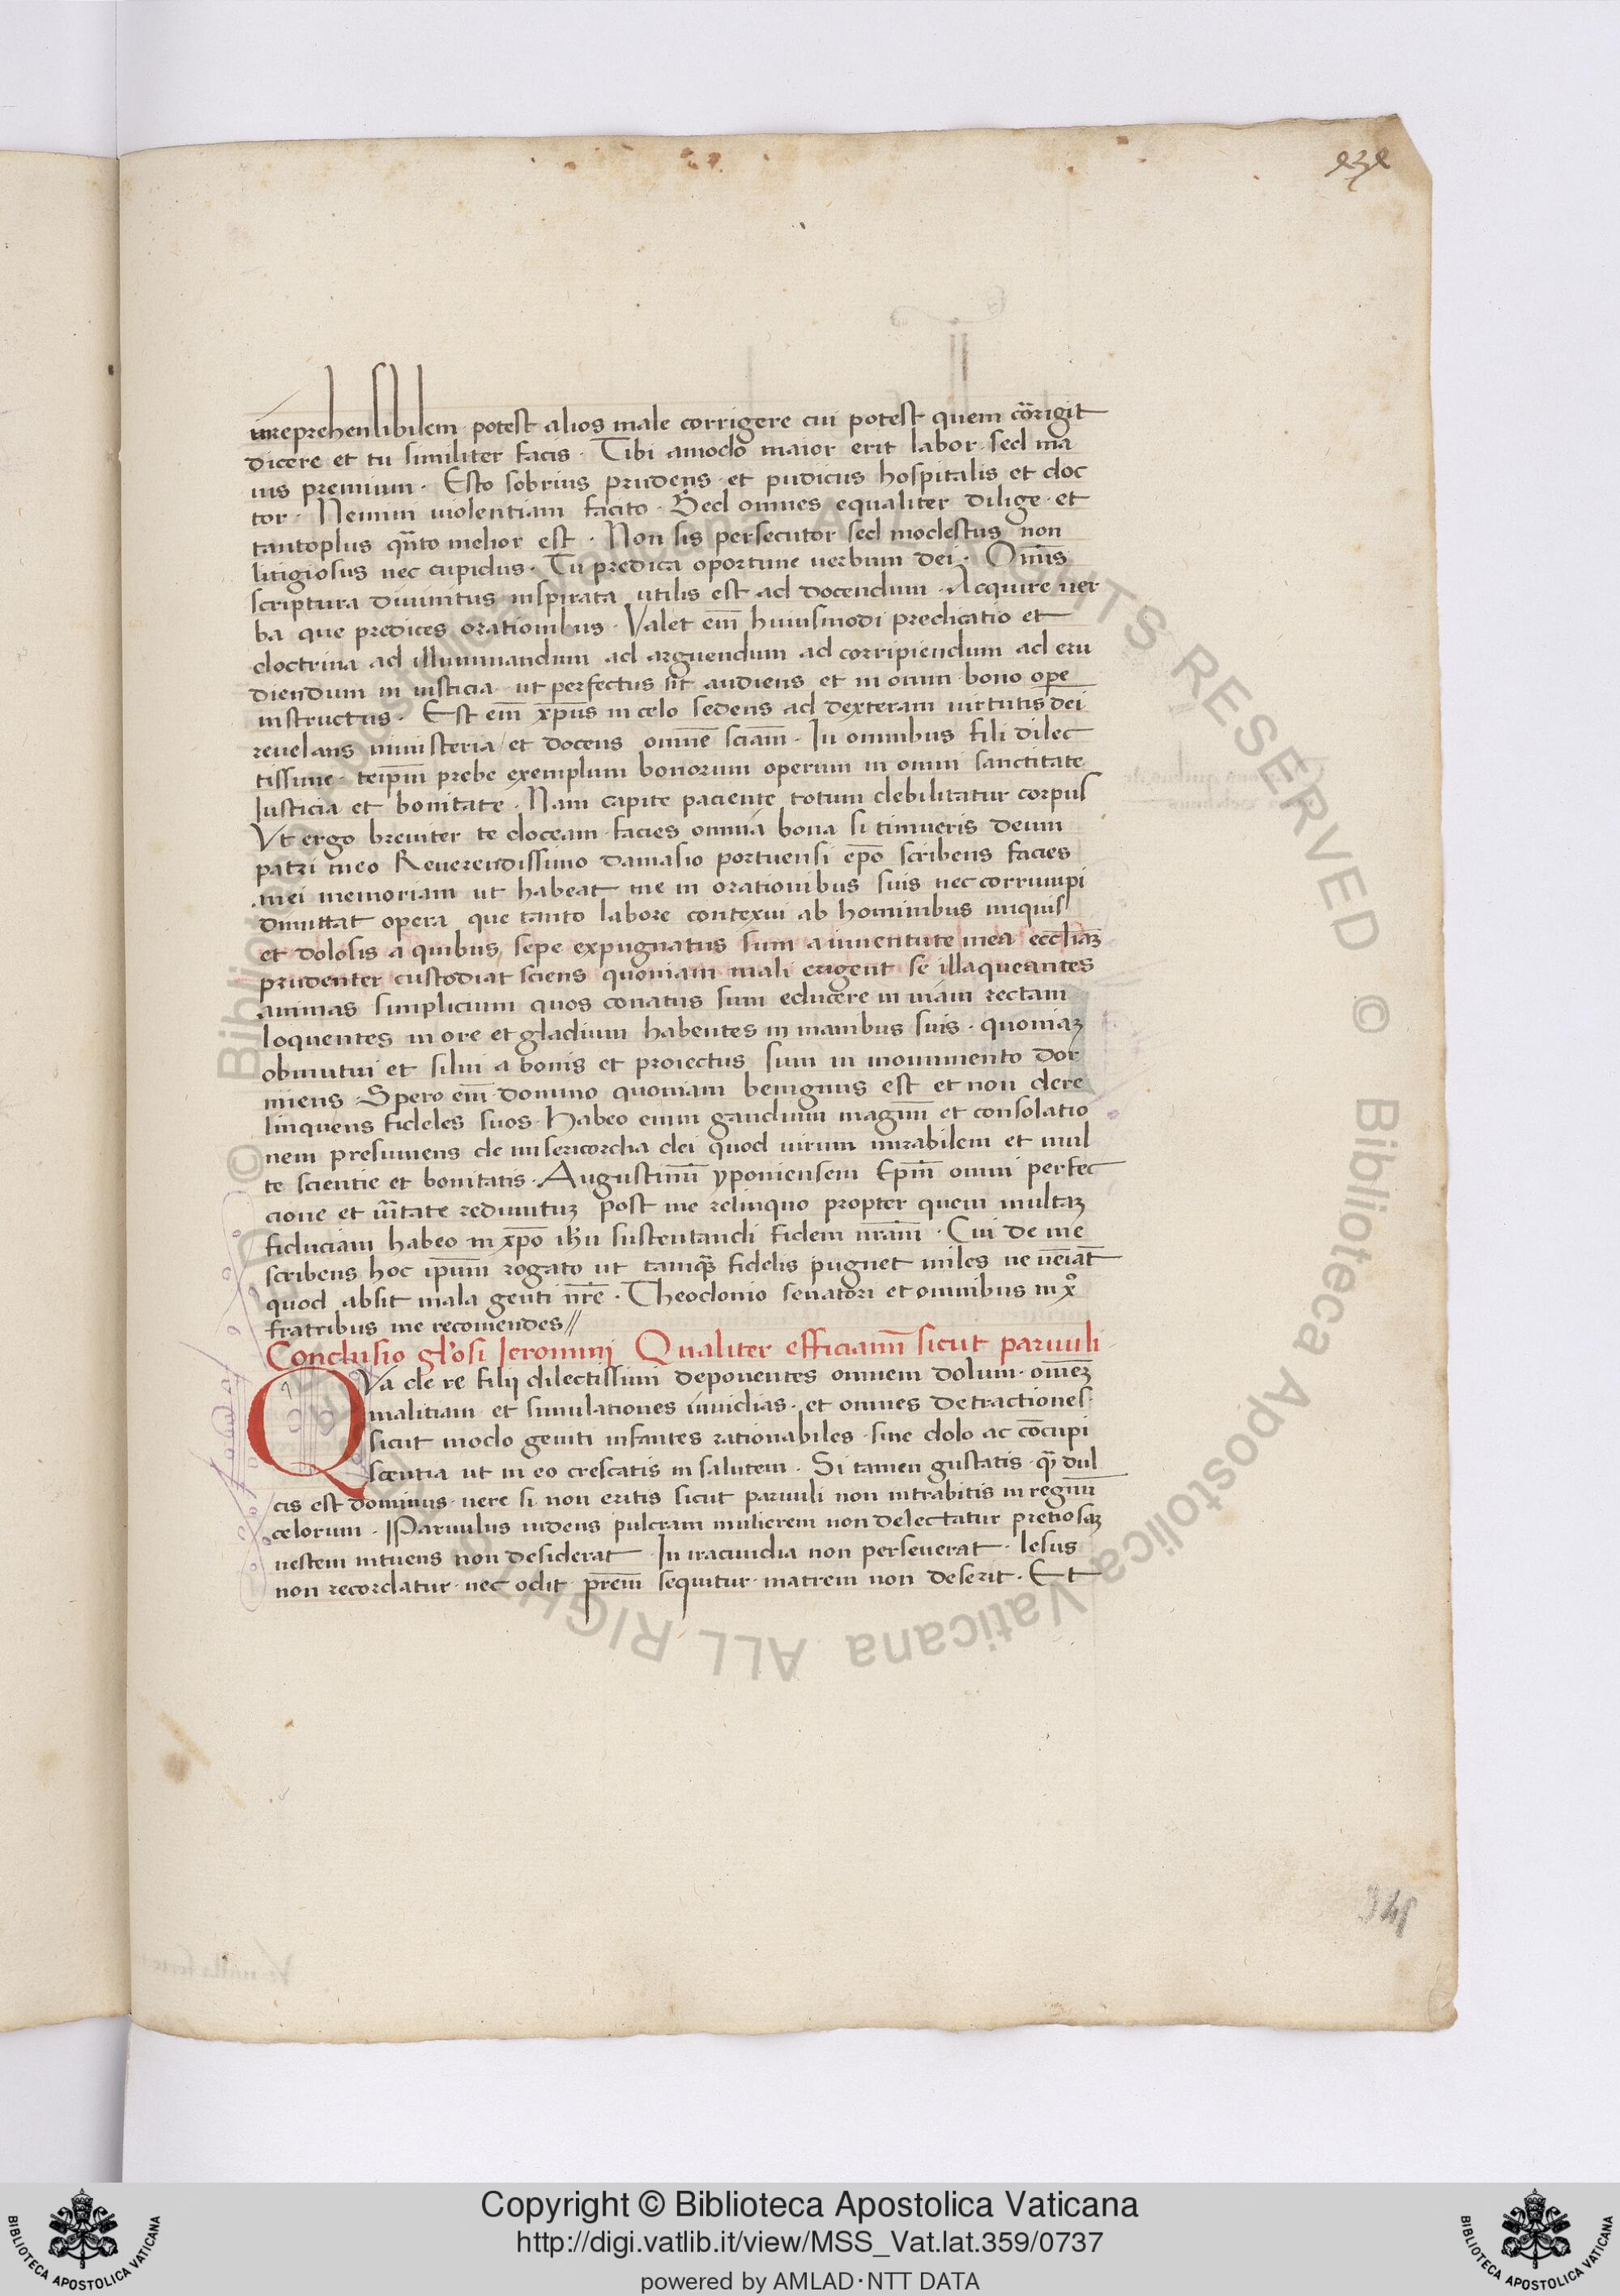 irreprehensibilem potest alios male corrigere cui potest quem corrigit
dicere et tu similiter facis · Tibi amodo maior erit labor · sed ma
ius premium · Esto sobrius prudens · et pudicus hospitalis et doc
tor · Nemini uiolentiam facito · Sed omnes equaliter dilige · et
tantoplus qn̄to melior est · Non sis persecutor sed modestus non
litigiosus nec cupidus · Tu predica oportune uerbum dei · Omīs
scriptura diuinitus inspirata utilis est ad docendum · Acquire uer
ba que predices orationibus · Valet em̄ huiusmodi predicatio et
doctrina ad illuminandum ad arguendum ad corripiendum ad eru
diendum in iusticia ut perfectus sit audiens et in omni bono ope
instructus · Est em̄ xp̄us in celo sedens ad dexteram uirtutis dei
reuelans ministeria / et docens omnē sciam̄ · In omnibus fili dilec
tissime · teip̄m prebe exemplum bonorum operum in omni sanctitate
Iusticia et bonitate · Nam capite paciente totum debilitatur corpus
Vt ergo breuiter te doceam facies omnia bona si timueris deum
patri meo Reuerendissimo damasio portuensi ep̄o scribens facies
mei memoriam ut habeat me in orationibus suis nec corrumpi
dimittat opera que tanto labore contexui ab hominibus iniquis
et dolosis a quibus sepe expugnatus sum a iuuentute mea eccl̄iaꝫ
prudenter custodiat sciens quoniam mali erigent se illaqueantes
animas simplicium quos conatus sum educere in uiam rectam
loquentes in ore et gladium habentes in manibus suis · quoniaꝫ
obmutui et silui a bonis et proiectus sum in monumento dor
miens · Spero em̄ domino quoniam benignus est et non dere
linquens fideles suos · Habeo enim gaudium magnū et consolatio
nem presumens de misericordia dei quod uirum mirabilem et mul
te scientie et bonitatis · Augustinū yponiensem Ep̄m omni perfec
cione et ūitate redimituꝫ post me relinquo propter quem multaꝫ
fiduciam habeo in xp̄o ih̄u sustentandi fidem nr̄am · Cui de me
scribens hoc ip̄um rogato ut tamq̄ fidelis pugnet miles ne ueīat
quod absit mala genti nr̄e · Theodonio senatori et omnibus in xº
fratribus me recomendes //
Conclusio gl'osi Ieronimj Qualiter efficiam̄ sicut paruuli
QVa de re filij dilectissimi deponentes omnem dolum · om̄eꝫ
malitiam et simulationes inuidias · et omnes detractiones
sicut modo geniti infantes rationabiles · sine dolo ac cōcupi
scentia ut in eo crescatis in salutem · Si tamen gustatis · qm̄ dul
cis est dominus · uere si non eritis sicut paruuli non intrabitis in regnū
celorum · Paruulus uidens pulcram mulierem non delectatur pretiosaꝫ
uestem intuens non desiderat · In iracundia non perseuerat · lesus
non recordatur · nec odit pr̄em sequitur · matrem non deserit · Et
Copyright © Biblioteca Apostolica Vaticana
http://digi.vatlib.it/view/MSS_Vat.lat.359/0737
powered by AMLAD·NTT DATA